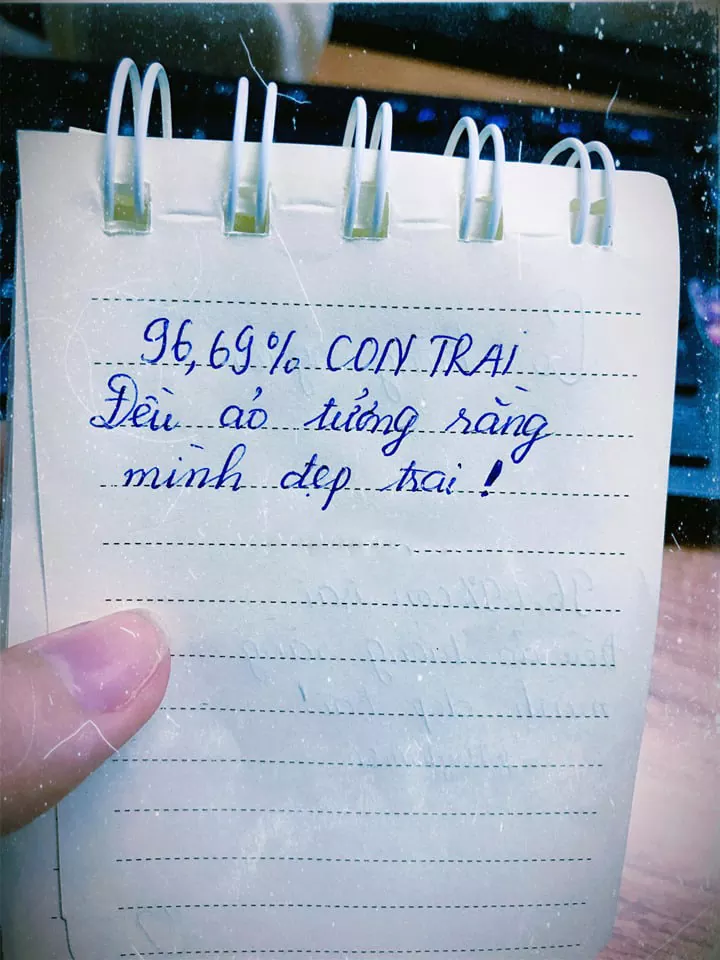 96,69% CON TRAI
Đều ảo tưởng rằng
mình đẹp trai !